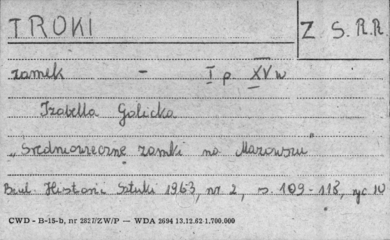 TROKI
Z S.R.R.
zamek - I p XV w
Izabella Galicka
„Średniowieczne zamki na Mazowszu"
Biul. Historii Sztuki 1963, nr. 2, s. 109-118, ryc 10
CWD - B-15-b, nr 2827/ZW/P — WDA 2694 13.12.62 1.700.000